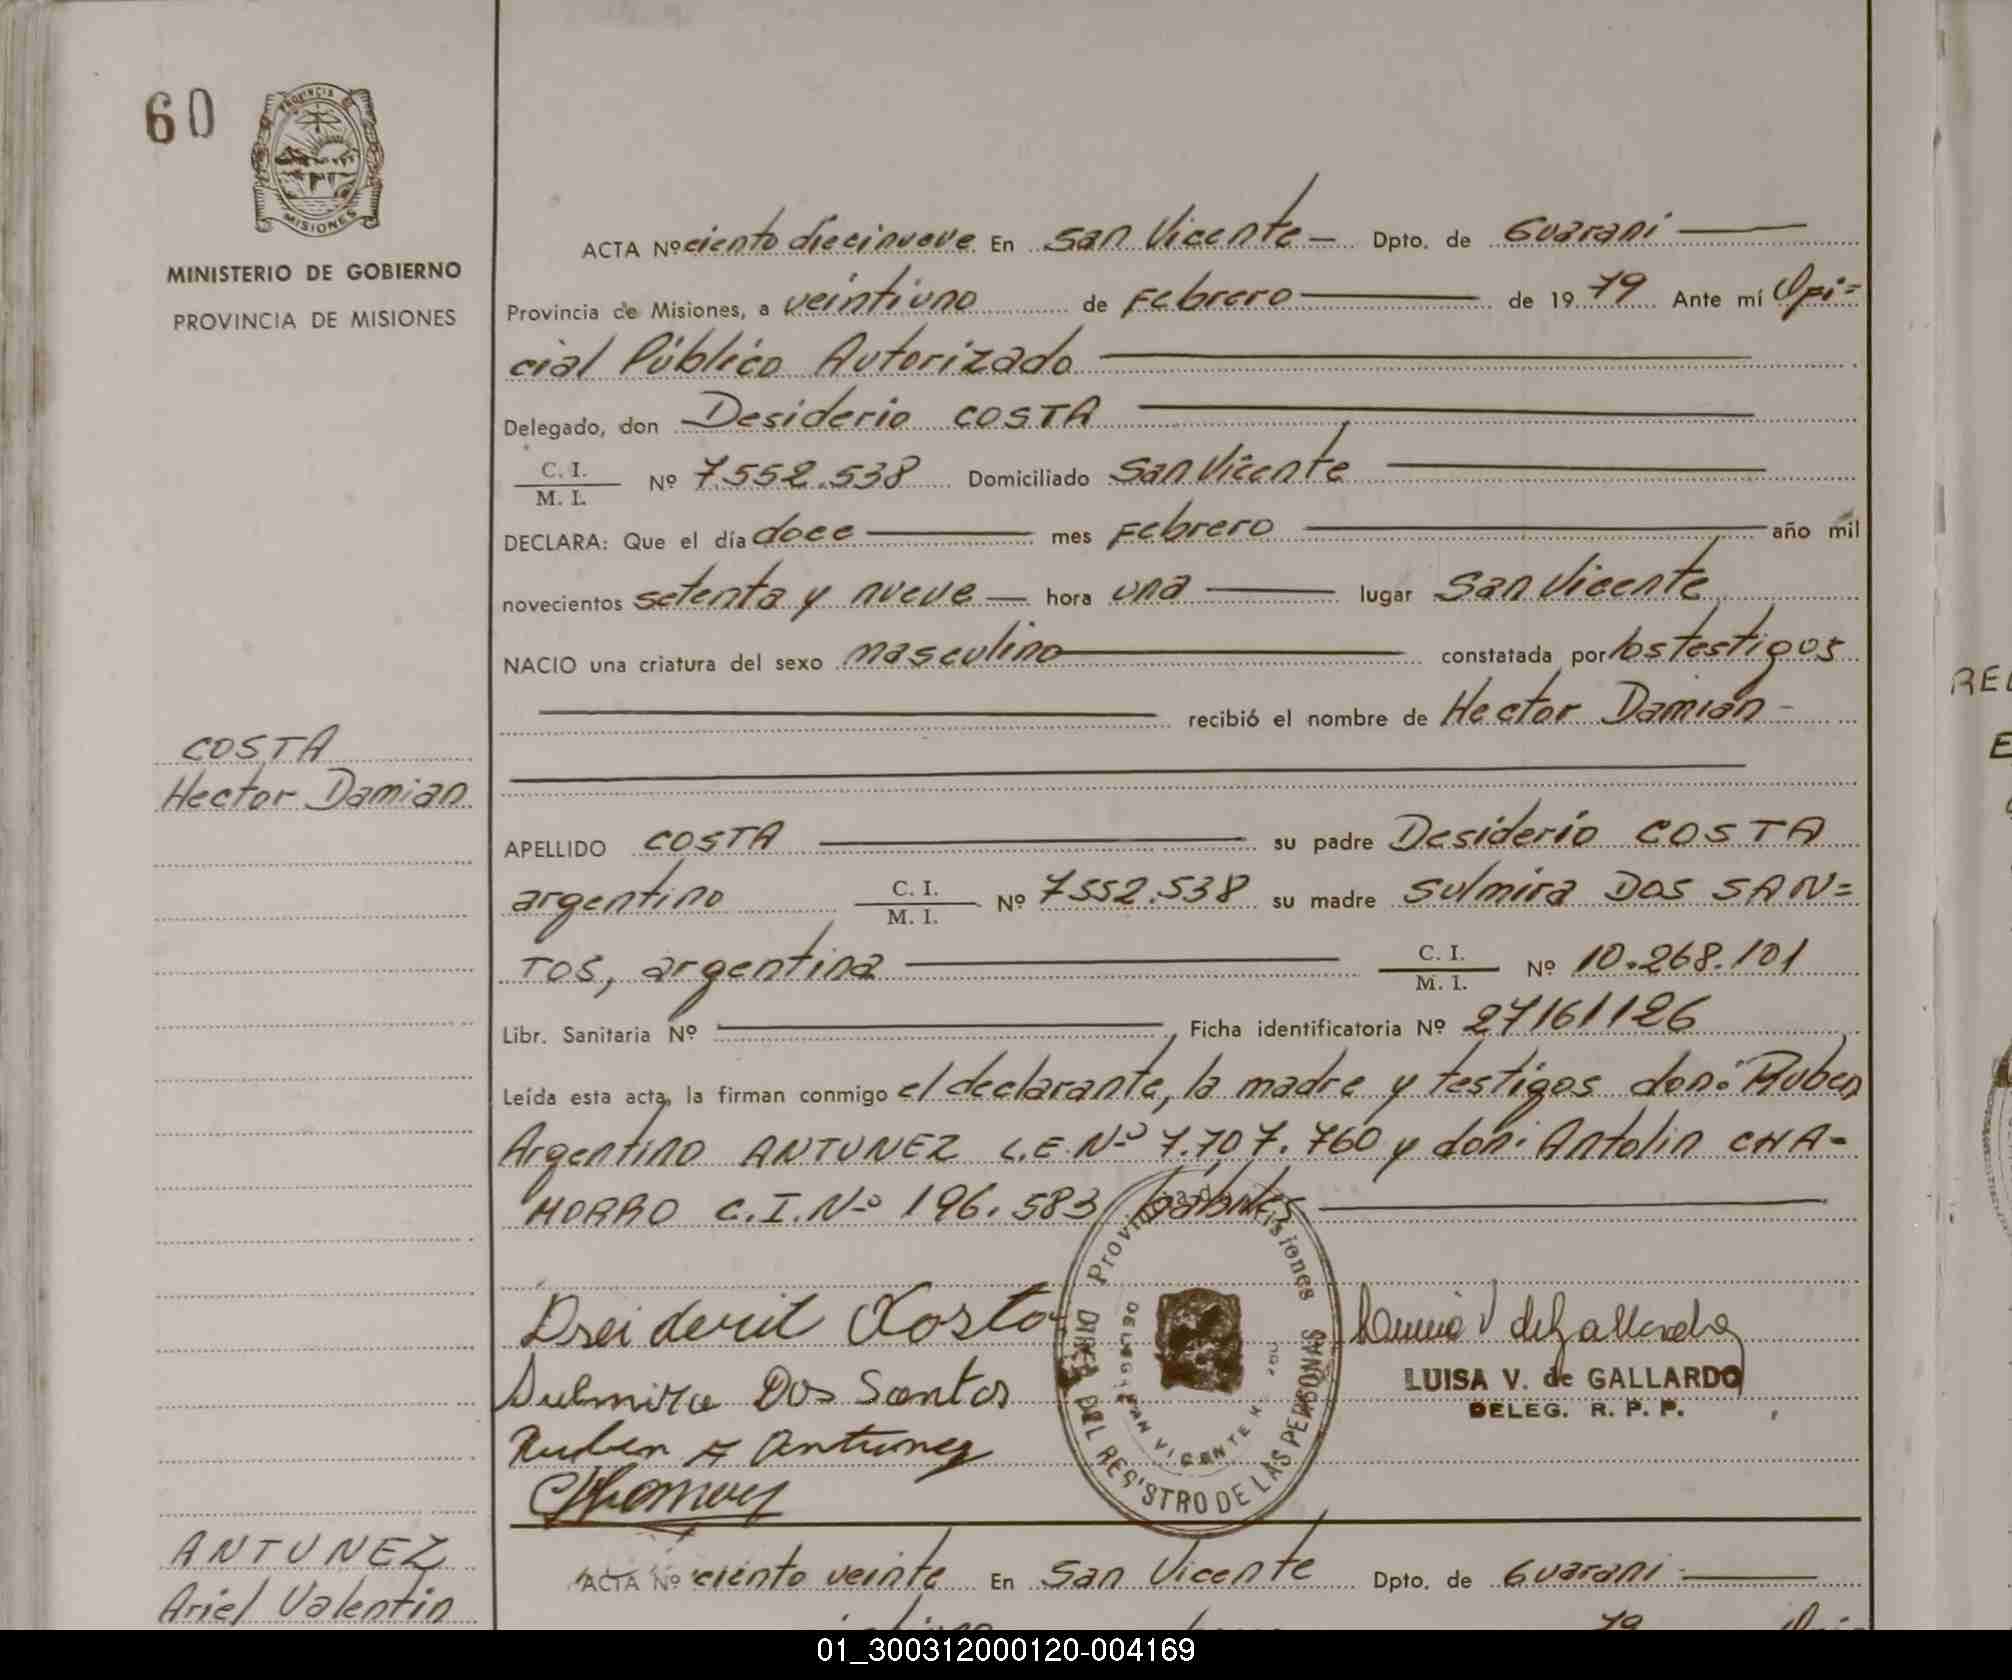 60
PROVINCIA DE
MISIONES
MINISTERIO DE GOBIERNO
PROVINCIA DE MISIONES
ACTA Nº ciento diecinueve En San Vicente Dpto. de Guarani
Provincia de Misiones, a veintiuno de Febrero de 1979 Ante mí Ofi=
cial Público Autorizado
Delegado, don Desiderio COSTA
C. I.
M. I. Nº 7.552.538 Domiciliado San Vicente
DECLARA: Que el día doce mes Febrero año mil
novecientos setenta y nueve hora una lugar San Vicente
NACIO una criatura del sexo masculino constatada por los testigos
recibió el nombre de Hector Damian
COSTA
Hector Damian
APELLIDO COSTA su padre Desiderio COSTA
argentino C. I. M. I. Nº 7552.538 su madre Sulmira DOS SAN=
TOS, argentina C. I. M. I. Nº 10.268.101
Libr. Sanitaria Nº , Ficha identificatoria Nº 27161126
Leída esta acta, la firman conmigo el declarante, la madre y testigos don: Ruben
Argentino ANTUNEZ L.E.Nº 7.707.760 y don: Antolin CHA-
MORRO C.I.Nº 196.583
Provincia de Misiones
DIREC. DEL REGISTRO DE LAS PERSONAS
SAN VICENTE
Costa
Sulmira Dos Santos
Ruben A Antunez
LUISA V. de GALLARDO
DELEG. R. P. P.
ANTUNEZ
Ariel Valentin
ACTA Nº ciento veinte En San Vicente Dpto. de Guarani
01_300312000120-004169